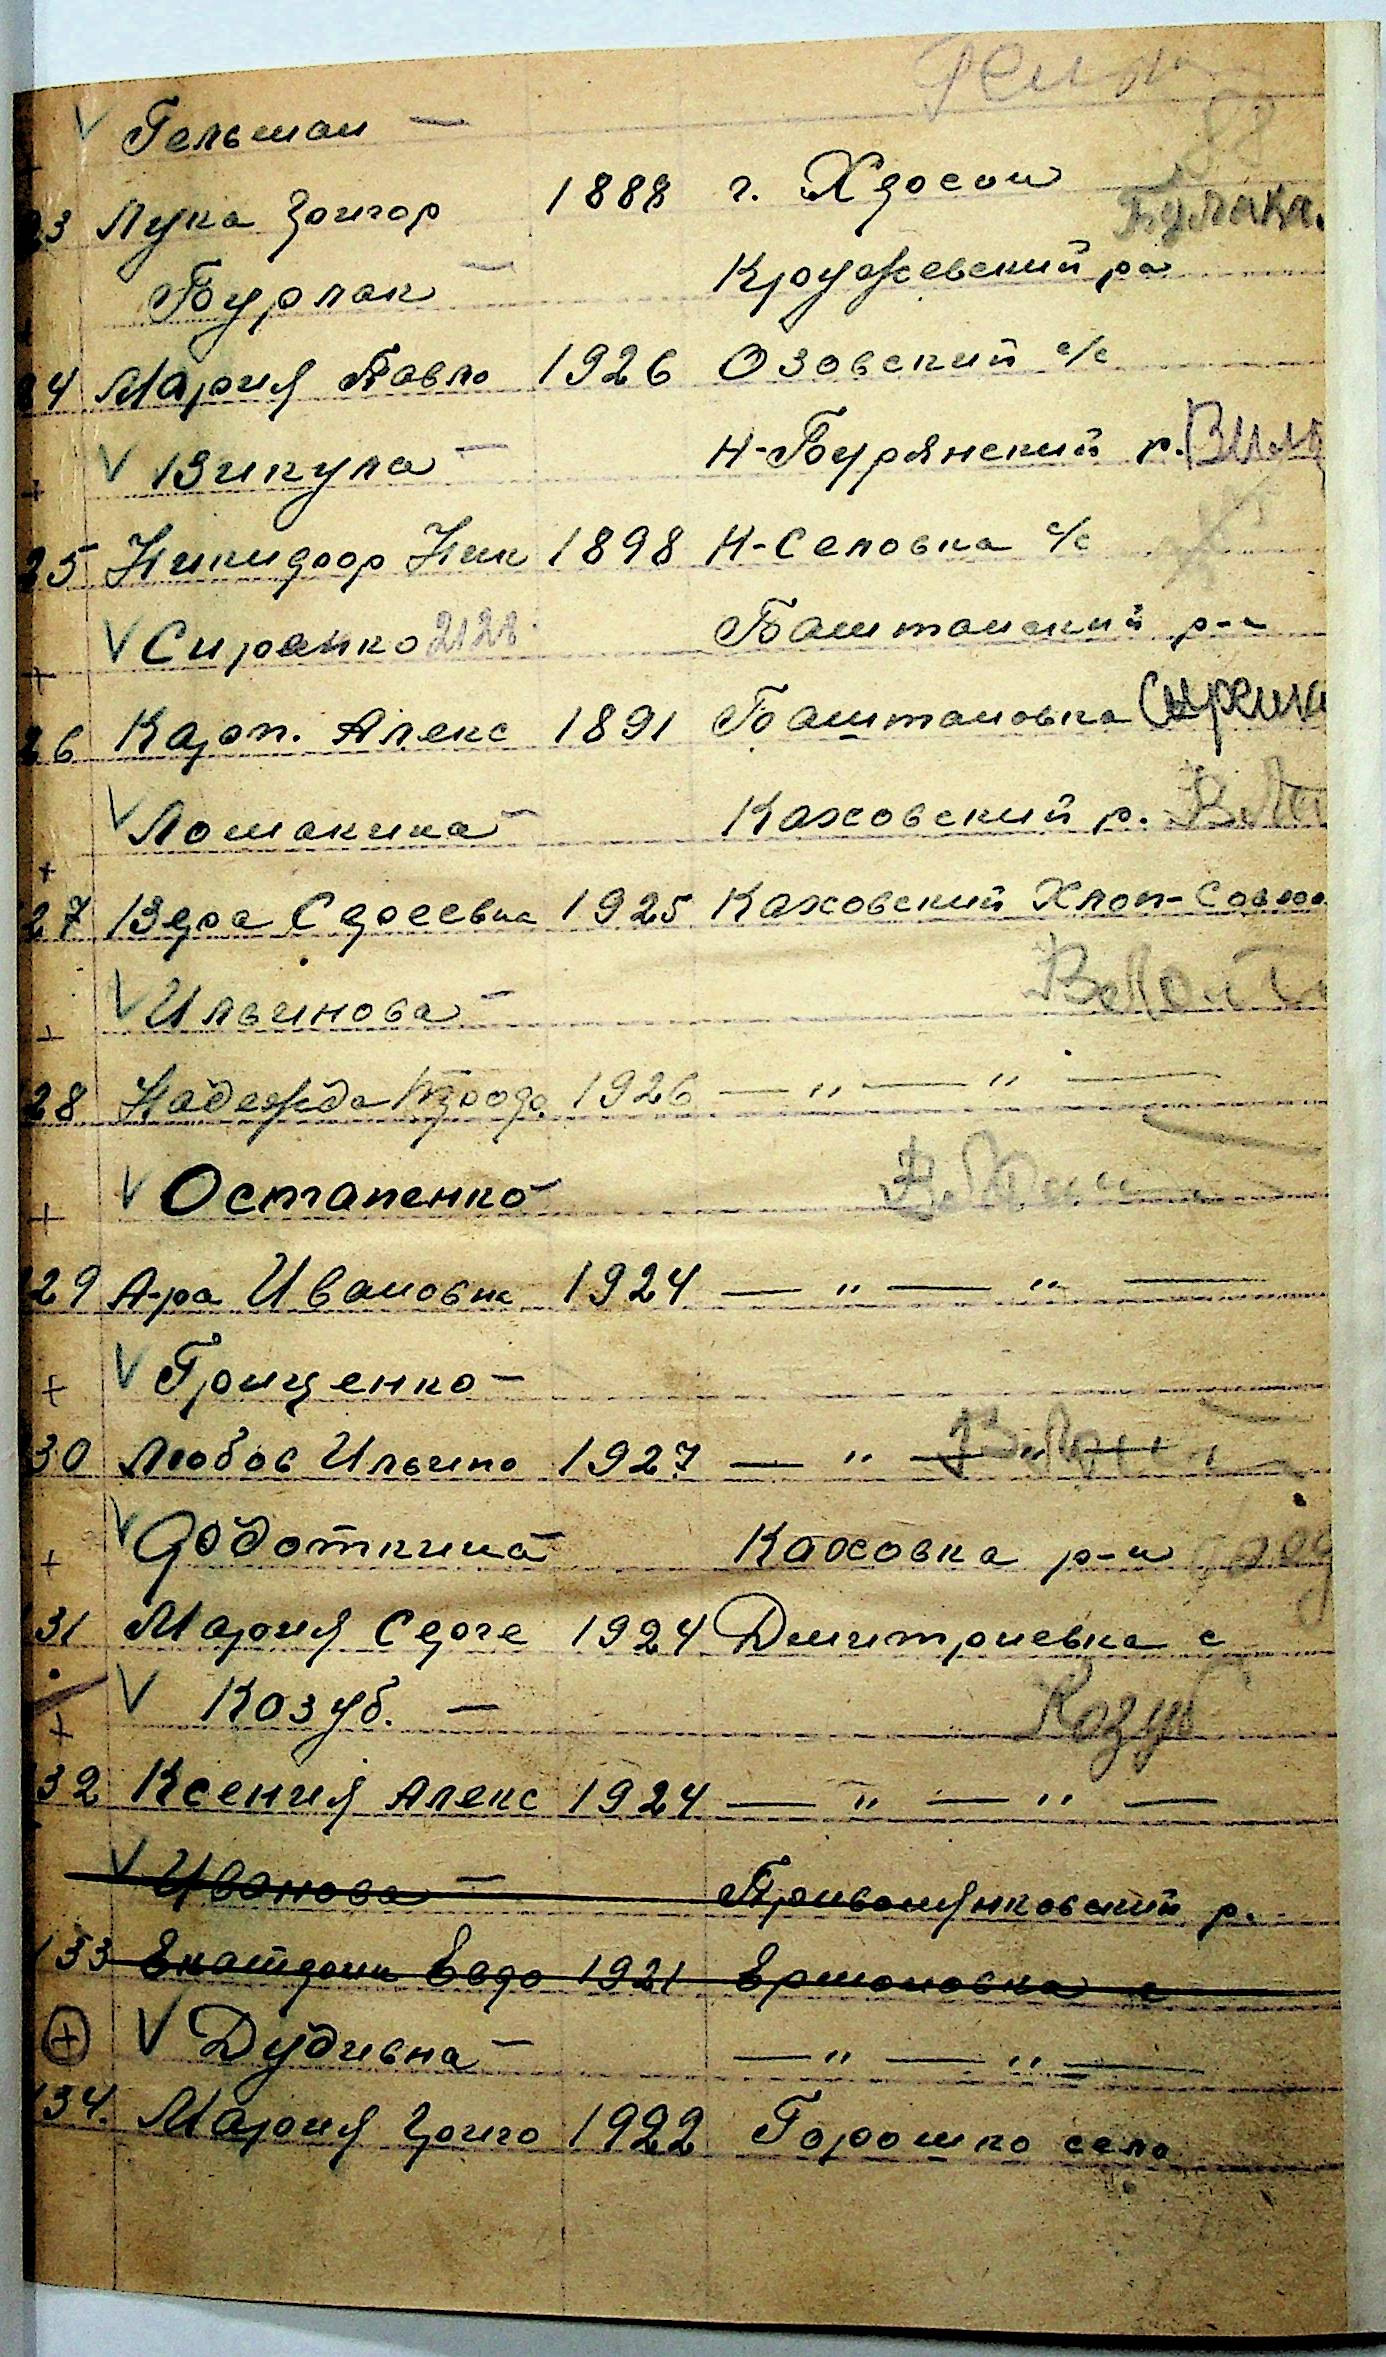 V Гельман —
23 Лука Григор 1888 г. Херсон
Бурлак — Кружевский ра Бурлак.
24 Мария Павло 1926 Озовский с/с
V Викула — Н-Бурянский р.
25 Никифор Ник 1898 Н-Селовка с/с
V Сиренко 2128 Баштанский р-н
26 Карп. Алекс 1891 Баштановка
V Ломакина — Каховский р.
27 Вера Сергеевна 1925 Каховский Хлоп-Совхоз
V Ильинова —
28 Надежда 1926 — " — " —
V Остапенко —
29 А-ра Ивановна 1924 — " — " —
V Грищенко —
30 Любов Ильино 1927 — " — " —
V Федоткина — Каховка р-н
131 Мария Серге 1924 Дмитриевка с
V Козуб. — Козуб
132 Ксения Алекс 1924 — " — " —
V Иванова — р.
133 Екатерин Евдо 1921 Ермоловка с
V Дудивна — — " — " —
134. Мария Григо 1922 Горошко село